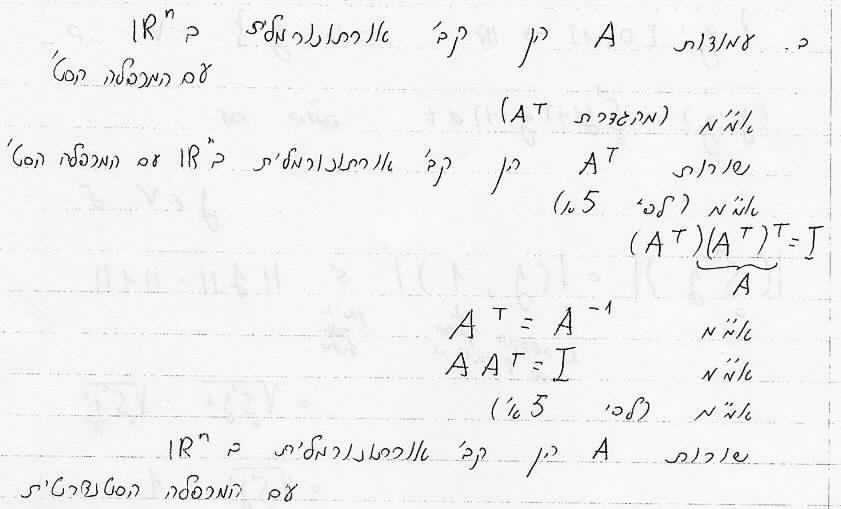 ב. עמודות A הן קב' אורתונורמלית ב ℝⁿ
עם המכפלה הסט'
אמ"מ (מהגדרת Aᵀ)
שורות Aᵀ הן קב' אורתונורמלית ב ℝⁿ עם המכפלה הסט'
אמ"מ (לפי 5 א')
(Aᵀ)(Aᵀ)ᵀ = I
A
אמ"מ Aᵀ = A⁻¹
אמ"מ AAᵀ = I
אמ"מ (לפי 5 א')
שורות A הן קב' אורתונורמלית ב ℝⁿ
עם המכפלה הסטנדרטית